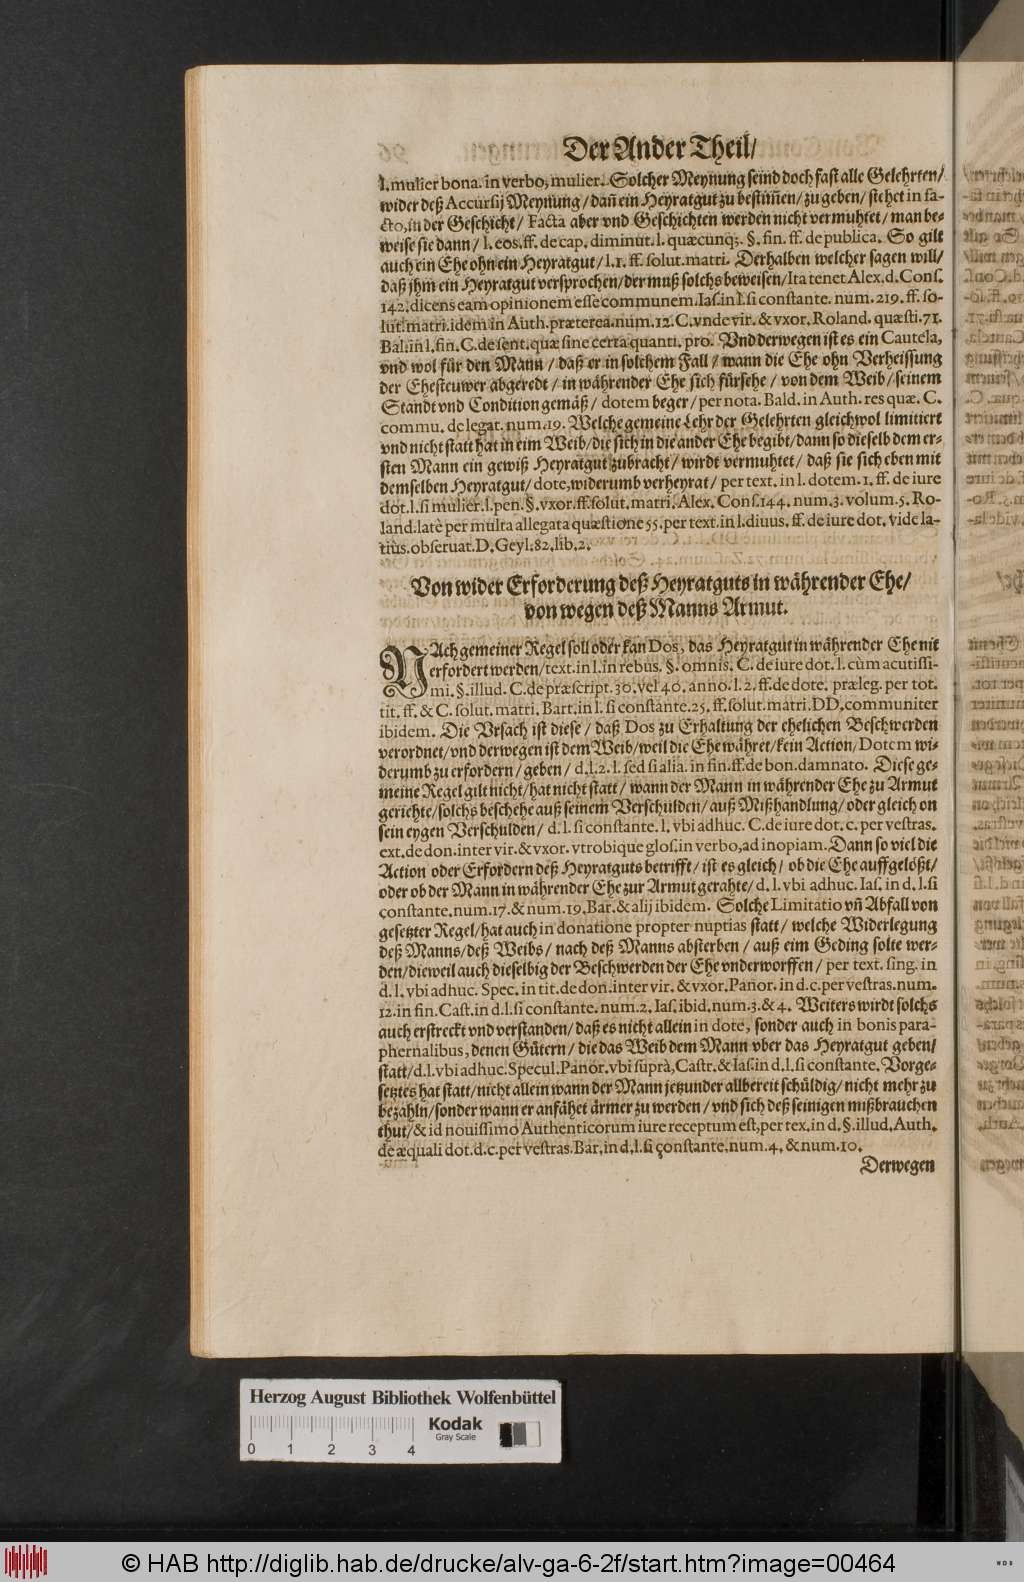 Der Ander Theil/
l. mulier bona. in verbo, mulier. Solcher Meynung seind doch fast alle Gelehrten/
wider deß Accursij Meynung/ dañ ein Heyratgut zu bestiṁen/ zu geben/ stehet in fa-
cto, in der Geschicht/ Facta aber vnd Geschichten werden nicht vermuhtet/ man be-
weise sie dann/ l. eos. ff. de cap. diminut. l. quæcunq;. §. fin. ff. de publica. So gilt
auch ein Ehe ohn ein Heyratgut/ l. 1. ff. solut. matri. Derhalben welcher sagen will/
daß jhm ein Heyratgut versprochen/ der muß solchs beweisen/ Ita tenet Alex. d. Cons.
142. dicens eam opinionem esse communem. Ias. in l. si constante. num. 219. ff. so-
lut. matri. idem in Auth. præterea. num. 12. C. vnde vir. & vxor. Roland. quæsti. 71.
Bal. in l. fin. C. de sent. quæ sine certa quanti. pro. Vnd derwegen ist es ein Cautela,
vnd wol für den Mann/ daß er in solchem Fall/ wann die Ehe ohn Verheissung
der Ehesteuwer abgeredt/ in währender Ehe sich fürsehe/ von dem Weib/ seinem
Standt vnd Condition gemäß/ dotem beger/ per nota. Bald. in Auth. res quæ. C.
commu. de legat. num. 19. Welche gemeine Lehr der Gelehrten gleichwol limitiert
vnd nicht statt hat in eim Weib/ die sich in die ander Ehe begibt/ dann so dieselb dem er-
sten Mann ein gewiß Heyratgut zubracht/ wirdt vermuhtet/ daß sie sich eben mit
demselben Heyratgut/ dote, widerumb verheyrat/ per text. in l. dotem. 1. ff. de iure
dot. l. si mulier. l. pen. §. vxor. ff. solut. matri. Alex. Cons. 144. num. 3. volum. 5. Ro-
land. latè per multa allegata quæstione 55. per text. in l. diuus. ff. de iure dot. vide la-
tiùs. obseruat. D. Geyl. 82. lib. 2.
Von wider Erforderung deß Heyratguts in währender Ehe/
von wegen deß Manns Armut.
NAch gemeiner Regel soll oder kan Dos, das Heyratgut in währender Ehe nit
erfordert werden/ text. in l. in rebus. §. omnis. C. de iure dot. l. cùm acutissi-
mi. §. illud. C. de præscript. 30. vel 40. anno. l. 2. ff. de dote. præleg. per tot.
tit. ff. & C. solut. matri. Bart. in l. si constante. 25. ff. solut. matri. DD. communiter
ibidem. Die Vrsach ist diese/ daß Dos zu Erhaltung der ehelichen Beschwerden
verordnet/ vnd derwegen ist dem Weib/ weil die Ehe währet/ kein Action, Dotem wi-
derumb zu erfordern/ geben/ d. l. 2. l. sed si alia. in fin. ff. de bon. damnato. Diese ge-
meine Regel gilt nicht/ hat nicht statt/ wann der Mann in währender Ehe zu Armut
geriehte/ solchs beschehe auß seinem Verschulden/ auß Mißhandlung/ oder gleich on
sein eygen Verschulden/ d. l. si constante. l. vbi adhuc. C. de iure dot. c. per vestras.
ext. de don. inter vir. & vxor. vtrobique glos. in verbo, ad inopiam. Dann so viel die
Action oder Erfordern deß Heyratguts betrifft/ ist es gleich/ ob die Ehe auffgelößt/
oder ob der Mann in währender Ehe zur Armut gerahte/ d. l. vbi adhuc. Ias. in d. l. si
constante. num. 17. & num. 19. Bar. & alij ibidem. Solche Limitatio vñ Abfall von
gesetzter Regel/ hat auch in donatione propter nuptias statt/ welche Widerlegung
deß Manns/ deß Weibs/ nach deß Manns absterben/ auß eim Geding solte wer-
den/ dieweil auch dieselbig der Beschwerden der Ehe vnderworffen/ per text. sing. in
d. l. vbi adhuc. Spec. in tit. de don. inter vir. & vxor. Panor. in d. c. per vestras. num.
12. in fin. Cast. in d. l. si constante. num. 2. Ias. ibid. num. 3. & 4. Weiters wirdt solchs
auch erstreckt vnd verstanden/ daß es nicht allein in dote, sonder auch in bonis para-
phernalibus, denen Gütern/ die das Weib dem Mann vber das Heyratgut geben/
statt/ d. l. vbi adhuc. Specul. Panor. vbi suprà, Castr. & Ias. in d. l. si constante. Vorge-
setztes hat statt/ nicht allein wann der Mann jetzunder allbereit schüldig/ nicht mehr zu
bezahln/ sonder wann er anfähet ärmer zu werden/ vnd sich deß seinigen mißbrauchen
thut/ & id nouissimo Authenticorum iure receptum est, per tex. in d. §. illud. Auth.
de æquali dot. d. c. per vestras. Bar. in d. l. si constante. num. 4. & num. 10.
Derwegen
Herzog August Bibliothek Wolfenbüttel
Kodak
Gray Scale
0 1 2 3 4
© HAB http://diglib.hab.de/drucke/alv-ga-6-2f/start.htm?image=00464